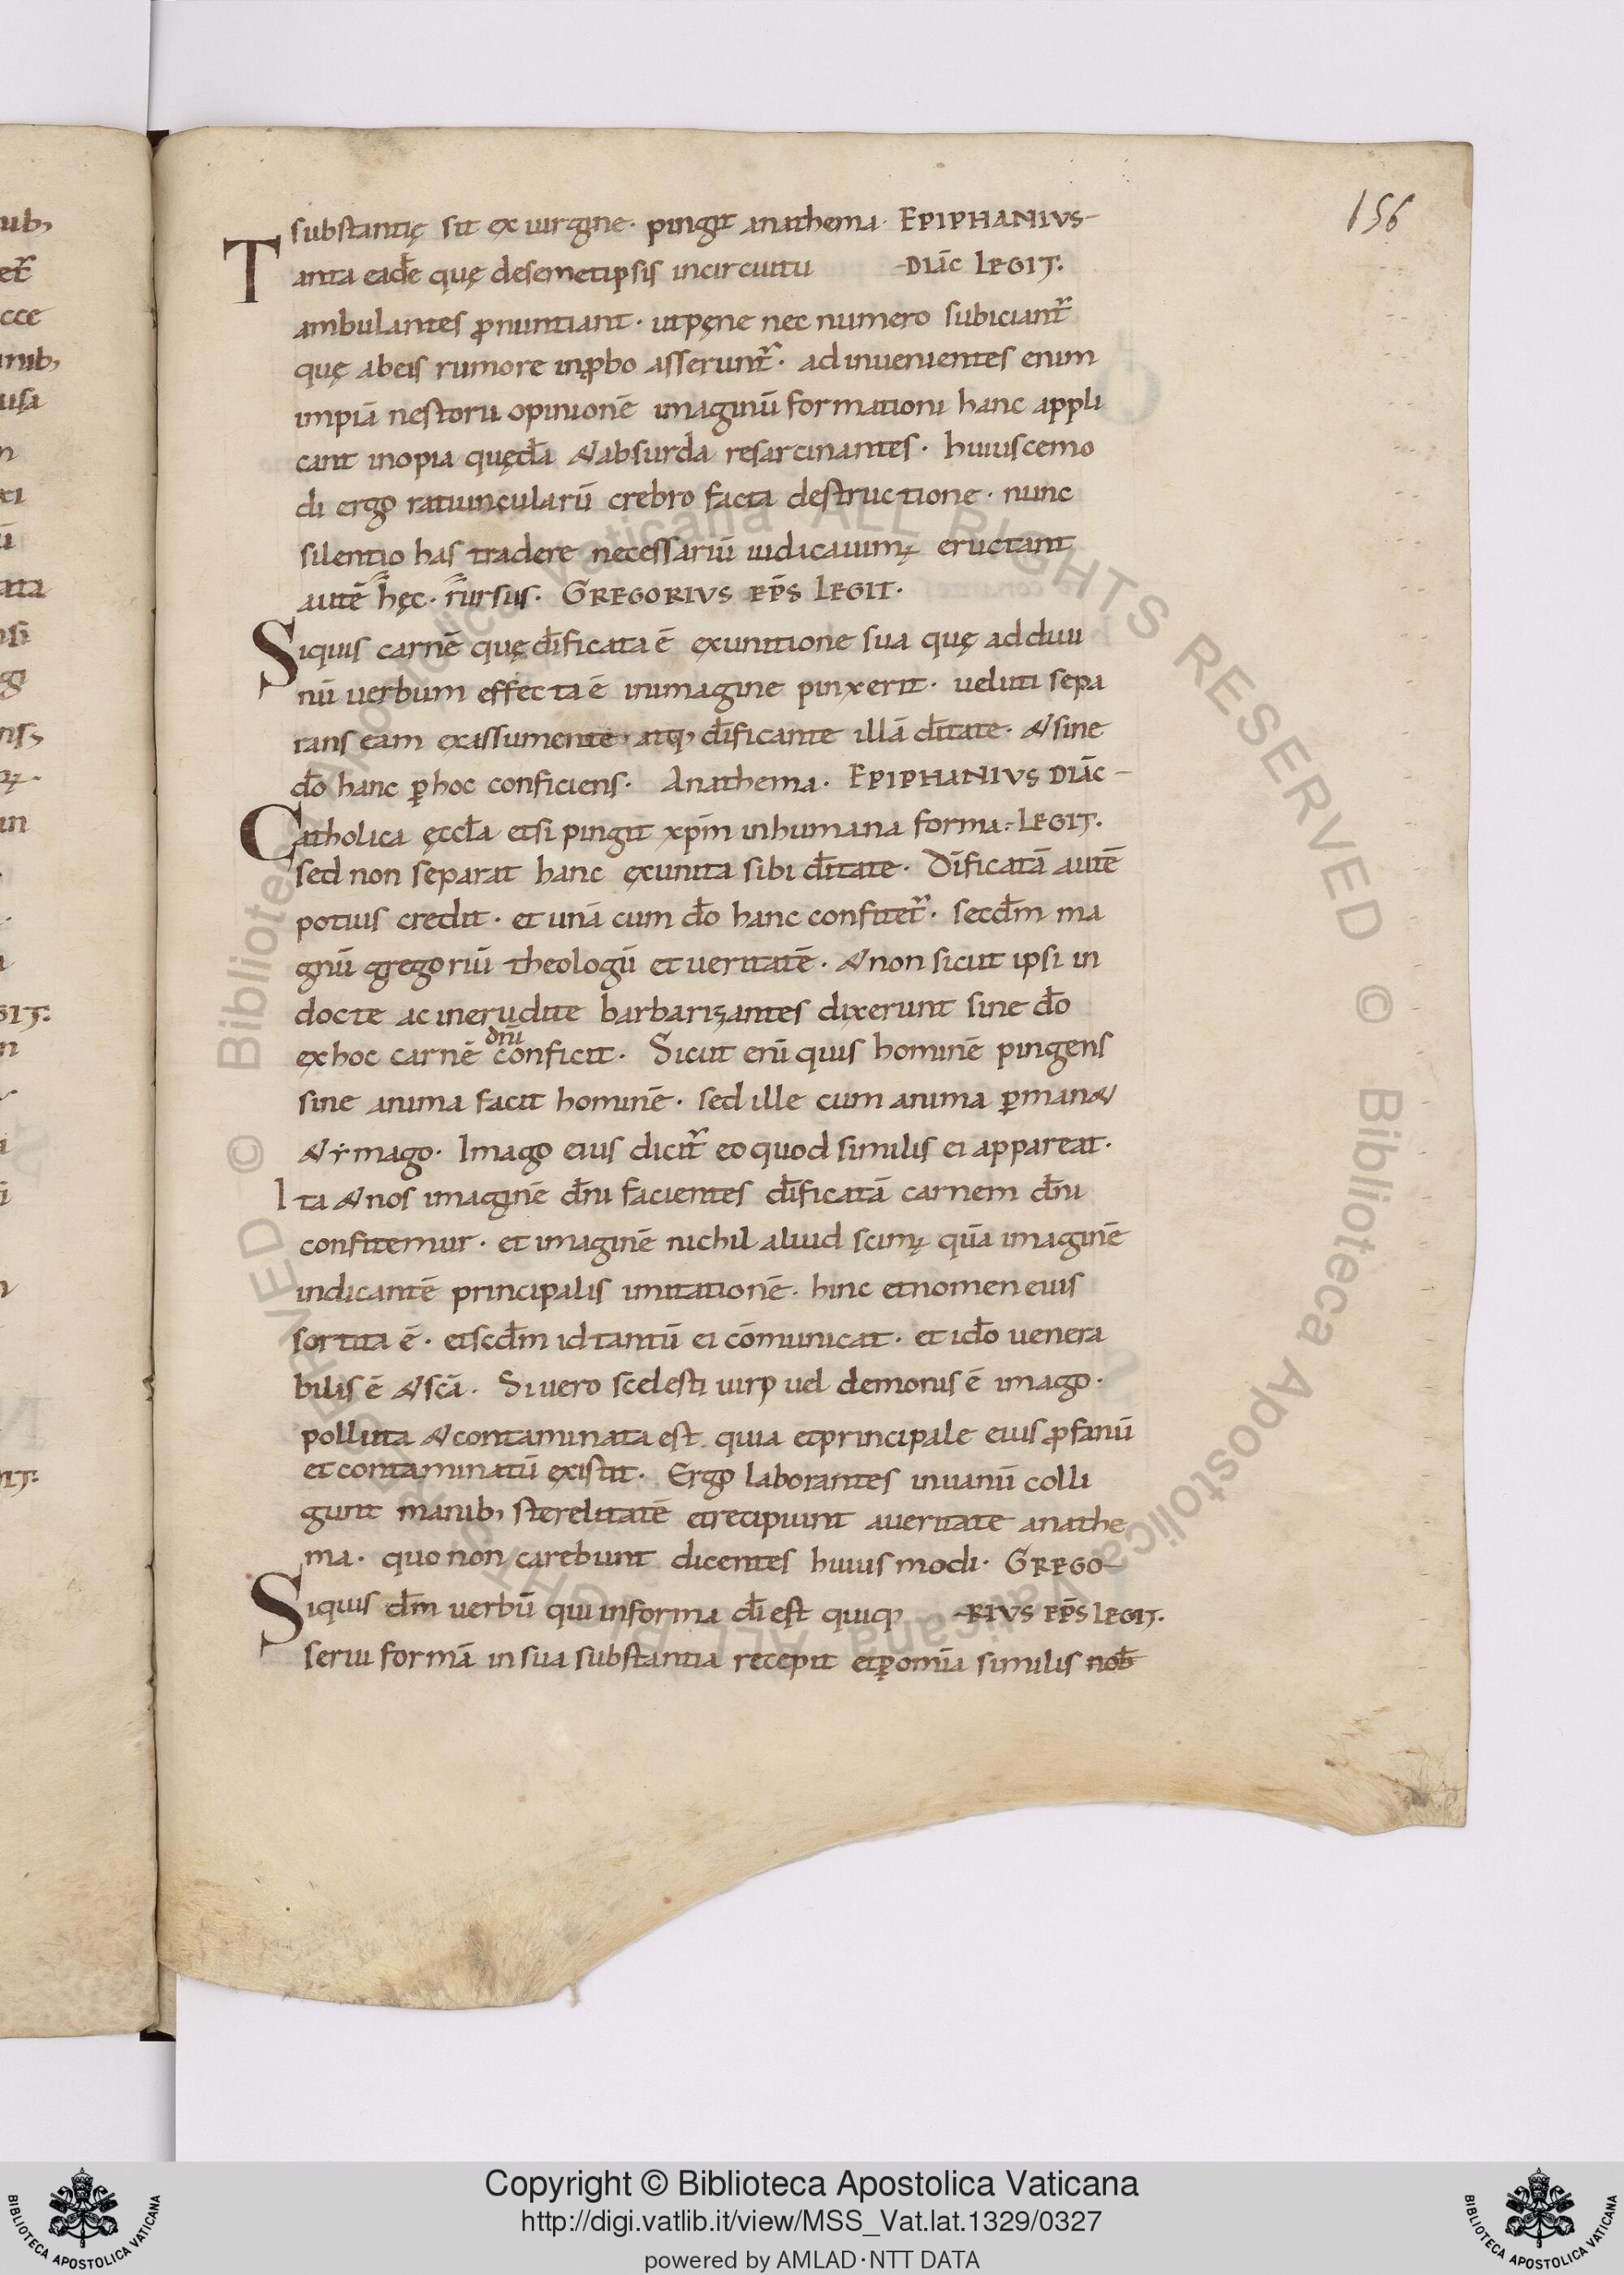 156
substantię sit ex uirgine· pingit anathema· EPIPHANIVS-
Tanta eadē quę desemetipsis incircuitu -DIAC̄ LEGIT.
ambulantes ꝓnuntiant· utpęne nec numero subiciantr̄
quę abeis rumore inꝓbo asseruntr̄· adinuenientes enim
impiā nestorii opinionē imaginū formationi hanc appli
cant inopia quędā &absurda resarcinantes· huiuscemo
di ergo ratiuncularū crebro facta destructione· nunc
silentio has tradere necessariū iudicauimꝰ eructant
autē hęc· rursus· GREGORIVS EP̄S LEGIT·
Siquis carnē quę dīficata ē exunitione sua quę adduui
nū uerbum effecta ē inimagine pinxerit· ueluti sepa
rans eam exassumente atq; dīficante illā dītate· &sine
dō hanc ꝑ hoc conficiens· Anathema· EPIPHANIVS DIAC̄-
Catholica ęccła etsi pingit xp̄m inhumana forma:-LEGIT.
sed non separat hanc exunita sibi dītate· Dīficatā autē
potius credit· et unā cum dō hanc confitetr̄· secdm̄ ma
gnū gregoriū theologū et ueritatē· &non sicut ipsi in
docte ac inerudite barbarizantes dixerunt sine dō
dn̄i
exhoc carnē conficit· Sicut enī quis hominē pingens
sine anima facit hominē· sed ille cum anima ꝑman&
&ymago· Imago eius dicitr̄ eo quod similis ei appareat·
Ita &nos imaginē dn̄i facientes dīficatā carnem dn̄i
confitemur· et imaginē nichil aliud scimꝰ quā imaginē
indicantē principalis imitationē· hinc etnomen eius
sortita ē· etscdm̄ id tantū ei cōmunicat· et idō uenera
bilis ē &scā· Si uero scelesti uiri uel demonis ē imago·
polluta &contaminata est quia etprincipale eius ꝓfanū
et contaminatū existit· Ergo laborantes inuanū colli
gunt manib; sterelitatē etrecipiunt aueritate anathe
ma· quo non carebunt dicentes huiusmodi· GREGO-
Siquis dm̄ uerbū qui informa dī est quiq; -RIVS EP̄S LEGIT.
serui formā in sua substantia recepit etꝑomīa similis nob̄
ub;
cce
usa
n
ata
Copyright © Biblioteca Apostolica Vaticana
http://digi.vatlib.it/view/MSS_Vat.lat.1329/0327
powered by AMLAD·NTT DATA
BIBLIOTECA APOSTOLICA VATICANA
BIBLIOTECA APOSTOLICA VATICANA